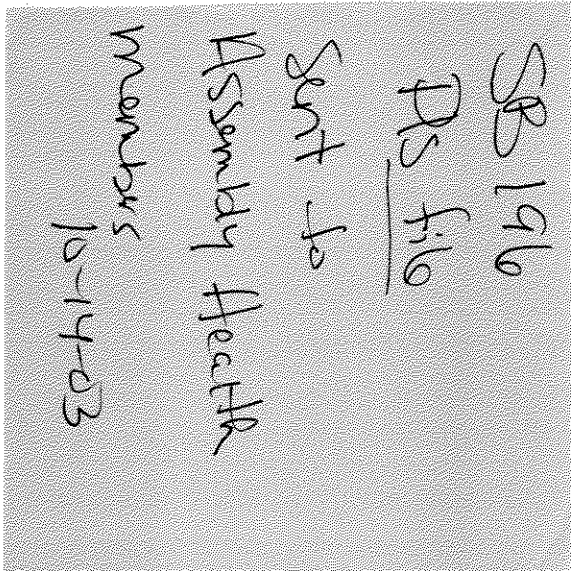 SB 196
DS file
Sent to
Assembly Health
members
10-14-03